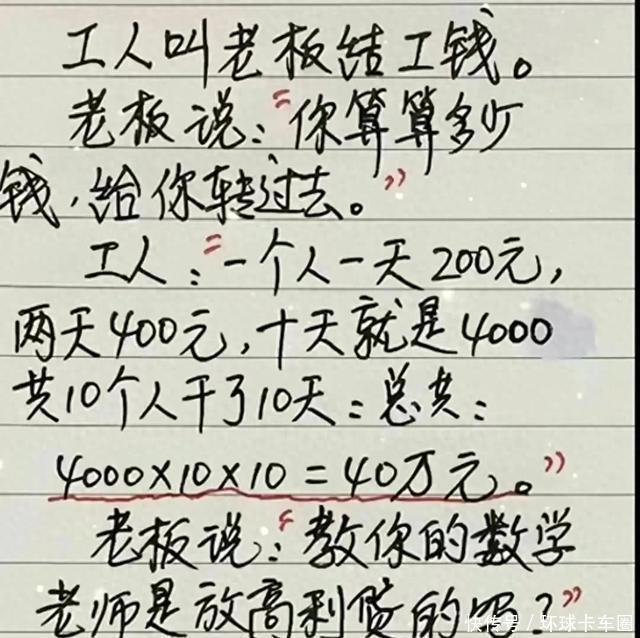 工人叫老板结工钱。
老板说:“你算算多少
钱,给你转过去。”
工人:“一个人一天200元,
两天400元,十天就是4000
共10个人干了10天:总共:
4000×10×10=40万元。”
老板说:“教你的数学
老师是放高利贷的吗?”
快传号/环球卡车圈